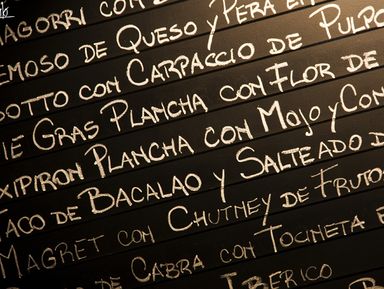 AGORRI CON
EMOSO DE QUESO Y PERA EN
OTTO CON CARPACCIO DE PULPO
IE GRAS PLANCHA CON FLOR DE
XIPIRON PLANCHA CON MOJO Y CON
TACO DE BACALAO Y SALTEADO D
MAGRET CON CHUTNEY DE FRUTOS
DE CABRA CON TOCINETA E
IBERICO